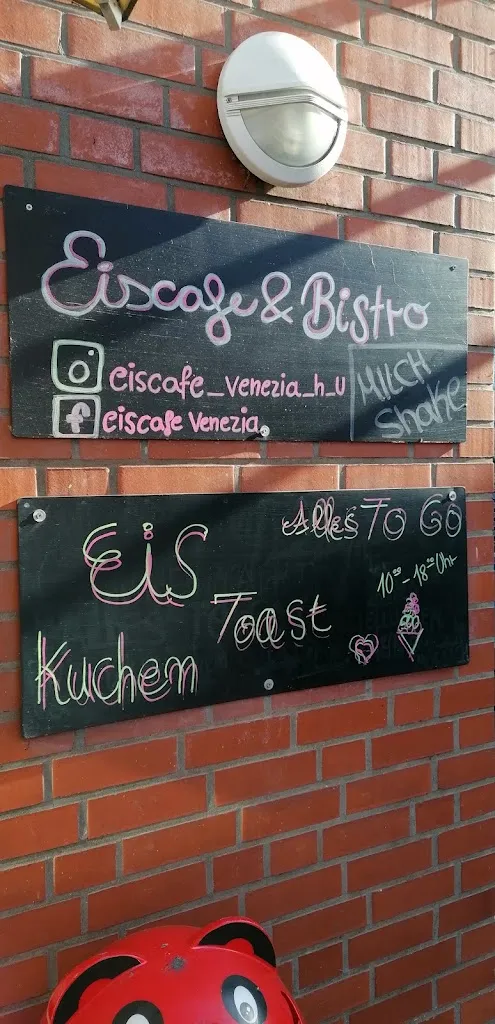 Eiscafe & Bistro
eiscafe_venezia_h_u
eiscafe venezia
MILCH
Shake
Alles To Go
Eis
10⁰⁰-18⁰⁰ Uhr
Toast
Kuchen